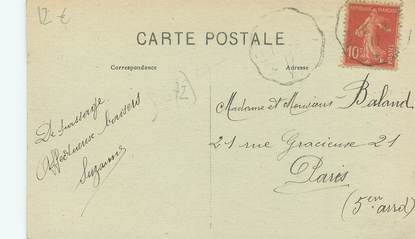 12 €
CARTE POSTALE
Correspondence
Adresse
72)
De passage
Affectueux baisers
Suzanne
Madame et Monsieur Baland
21 rue Gracieuse 21
Paris
(5em arrd)
10